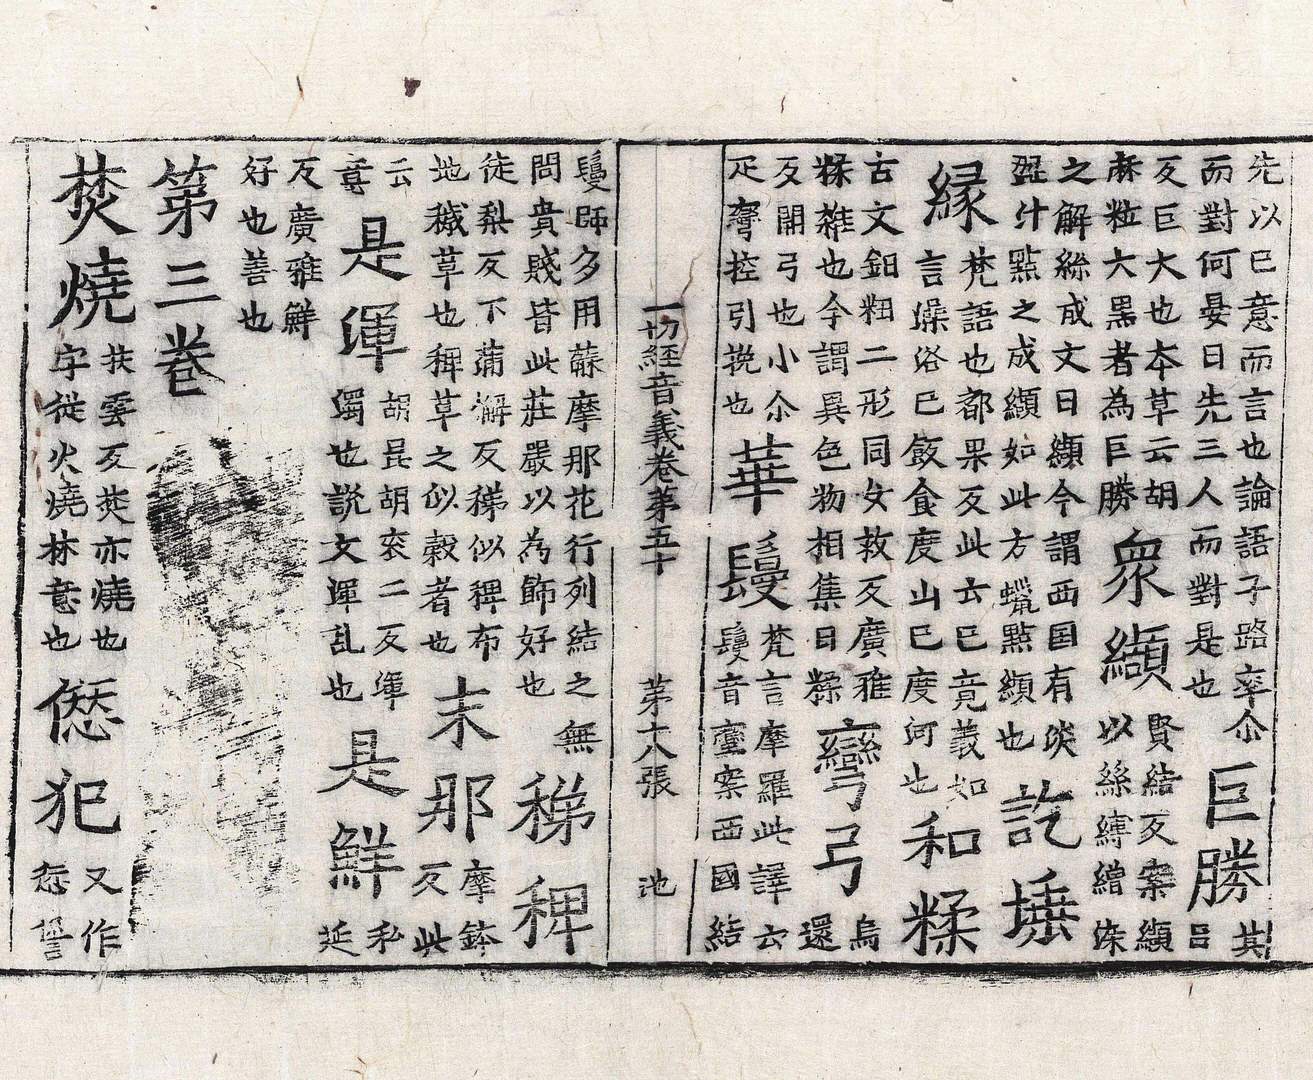 先以巳意而言也論語子路率尒
而對何晏曰先三人而對是也
巨勝
其
呂
反巨大也本草云胡
麻粒大黑者為巨勝
衆纈
賢結反案纈
以絲縛繒染
之解絲成文曰纈今謂西国有淡
澀汁點之成纈如此方蠟點纈也
訖埵
縁
梵語也都果反此云巳竟義如
言澡浴巳飯食度山巳度何也
和糅
古文鈕粈二形同女救反廣雅
糅雜也今謂異色物相集曰糅
彎弓
烏
還
反開弓也小尒
疋彎控引挽也
華鬘
梵言摩羅此譯云
鬘音蠻案西國結
一切經音義卷第五十 第十八張 池
鬘師多用蘇摩那花行列結之無
問貴賤皆此莊嚴以為飾好也
稊稗
徒梨反下蒲懈反稊似稗布
地穢草也稗草之似穀者也
末那
摩鉢
反此
云
尊
是渾
胡昆胡衮二反渾
濁也説文渾乱也
是鮮
私
延
反廣雅鮮
好也善也
第三卷
焚燒
扶雲反焚亦燒也
字從火燒林意也
僁犯
又作